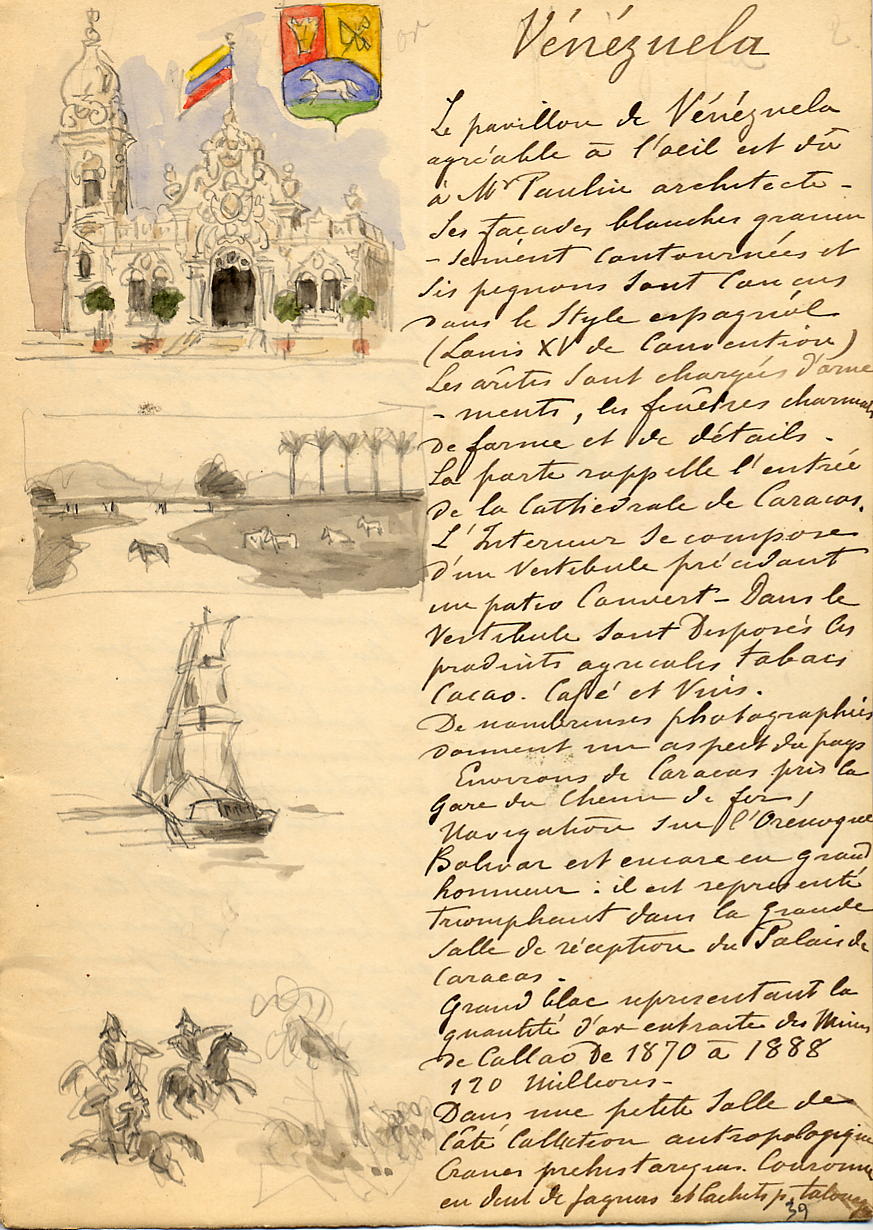 Vénézuela
2
or
Le pavillon de Vénézuela
agréable à l'oeil est dû
à Mr Paulin architecte -
Ses façades blanches gracieu
- sement contournées et
ses pignons sont Concus
dans le Style espagnol
(Louis XV de Convention)
Les arêtes sont chargées d'orne
- ments, les fenêtres charmants
de forme et de détails -
La porte rappelle l'entrée
de la Cathédrale de Caracas.
L'Interieur Se compose
d'un Vestibule précédant
un patio Couvert - Dans le
Vestibule sont Disposés les
produits agricoles tabacs
Cacao. Café et Vins.
De nombreuses photographies
donnent un aspect du pays
Environs de Caracas près la
Gare du Chemin de fer,
Navigation sur l'Orenoque
Bolivar est encore en grand
honneur : il est representé
triomphant dans la grande
salle de réception du Palais de
Caracas -
Grand bloc representant la
quantité d'or extraite des Mines
de Callao De 1870 à 1888
120 Millions -
Dans une petite Salle de
Côté Collection antropologique
Cranes prehistoriques. Couronne
en dent de Jaguars et
39